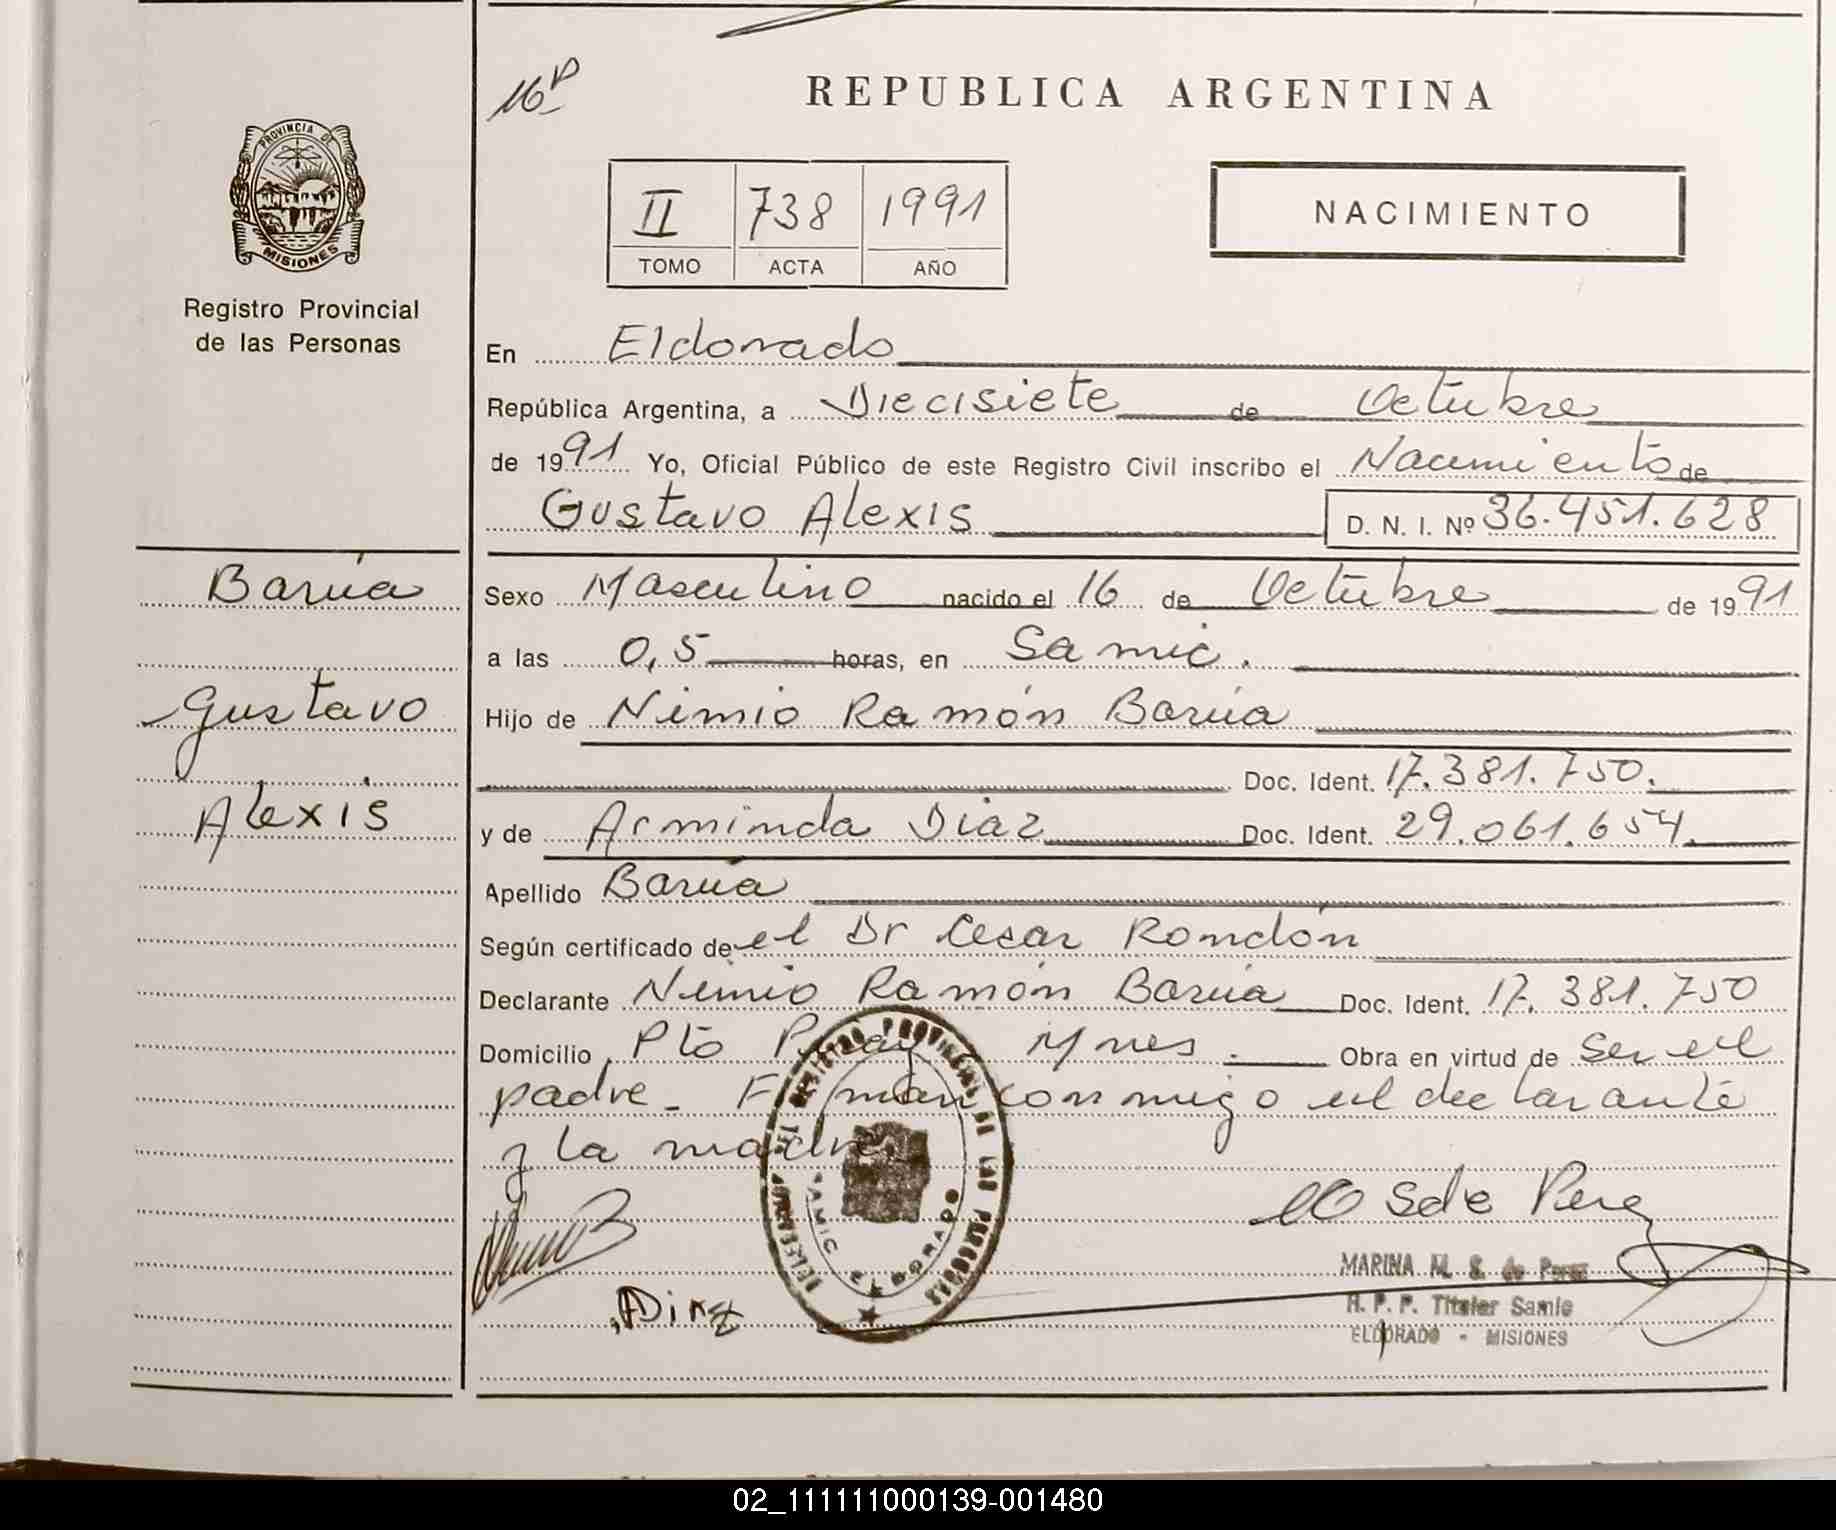 16º
REPUBLICA ARGENTINA
PROVINCIA DE
MISIONES
Registro Provincial
de las Personas
II 738 1991
TOMO ACTA AÑO
NACIMIENTO
En Eldorado
República Argentina, a Diecisiete de Octubre
de 1991 Yo, Oficial Público de este Registro Civil inscribo el Nacimiento de
Gustavo Alexis D. N. I. Nº 36.451.628
Barúa
Sexo Masculino nacido el 16 de Octubre de 1991
a las 0,5 horas, en Samic.
Gustavo
Hijo de Nimio Ramón Barúa
Doc. Ident. 17.381.750.
Alexis
y de Arminda Diaz Doc. Ident. 29.061.654.
Apellido Barúa
Según certificado de el Dr Cesar Romdón
Declarante Nimio Ramón Barúa Doc. Ident. 17.381.750
Domicilio Pto Piray Mnes. Obra en virtud de ser el
padre - Firman conmigo el declarante
y la madre.
REGISTRO PROVINCIAL DE LAS PERSONAS
SAMIC ELDORADO
S de Perez
MARINA M. S. de Perez
R. P. P. Titular Samic
ELDORADO - MISIONES
Diaz
02_111111000139-001480